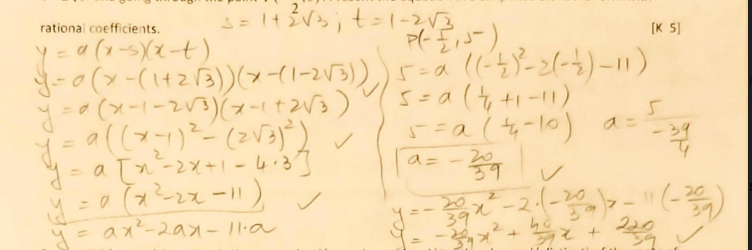 s = 1+2√3 ; t = 1-2√3
rational coefficients. [K 5]
P(-1/2, 5)
y = a(x-s)(x-t)
y = a(x-(1+2√3))(x-(1-2√3)) ✓
y = a(x-1-2√3)(x-1+2√3)
y = a((x-1)² - (2√3)²) ✓
y = a[x²-2x+1-4·3]
y = a(x²-2x-11) ✓
y = ax²-2ax-11·a
5 = a((-1/2)²-2(-1/2)-11)
5 = a(1/4+1-11)
5 = a(1/4-10) a = 5/(-39/4)
a = -20/39 ✓
y = -20/39 x² - 2·(-20/39)x - 11(-20/39)
y = -20/39 x² + 40/39 x + 220/39 ✓